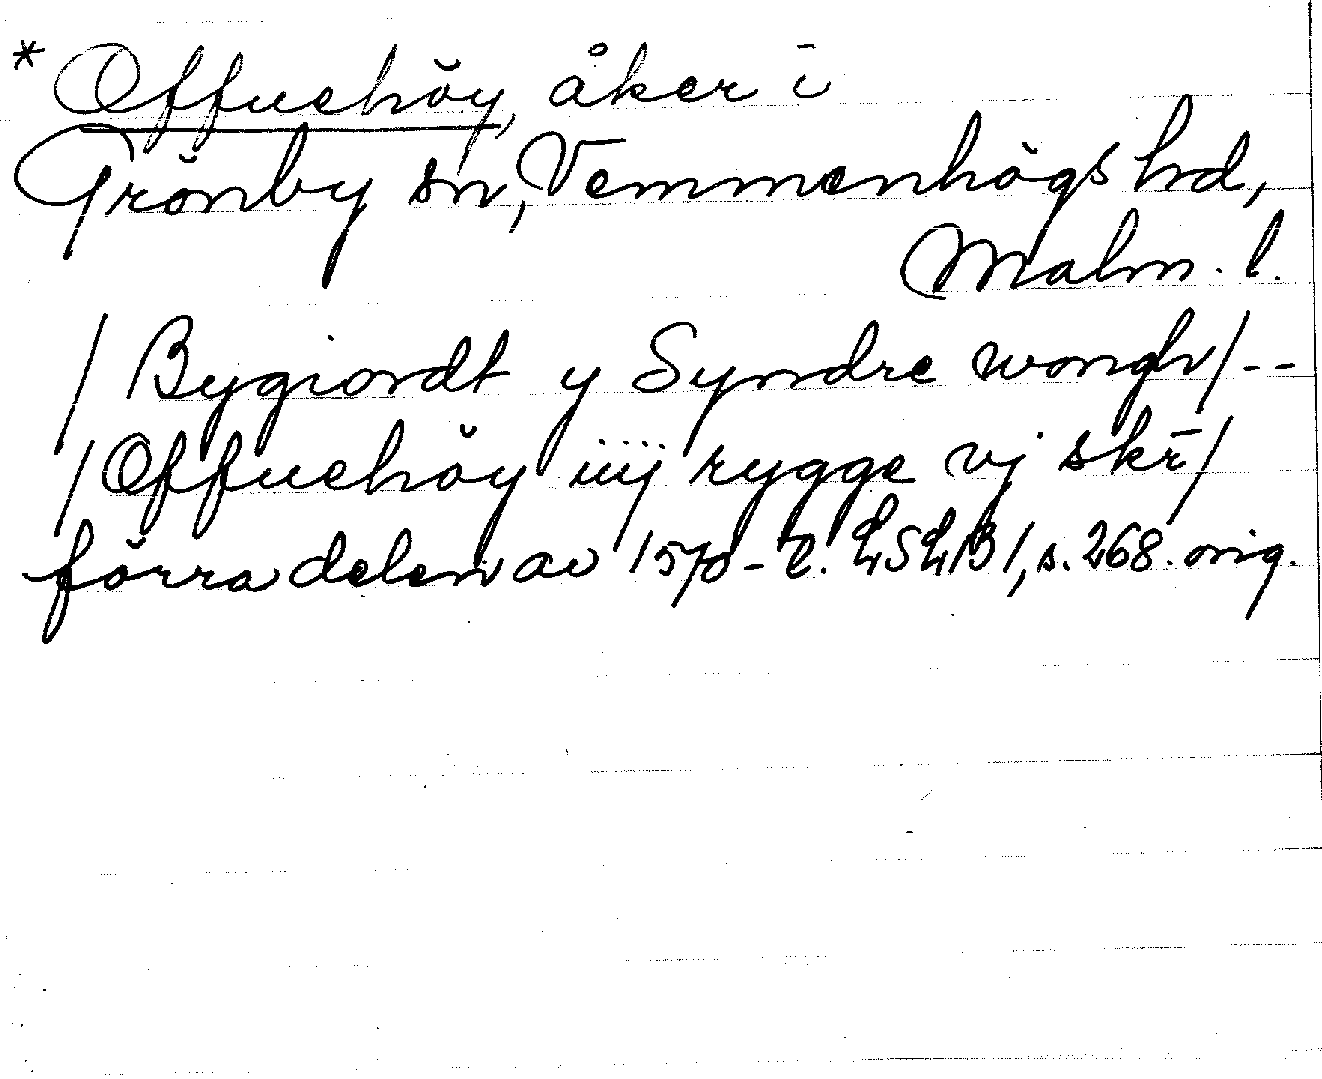 * Offuehöy, åker i
Grönby sn, Vemmenhögs hd,
Malm. l.
/ Bygiordt y Syndre wongh / - -
/ Offuehöy iiij rygge vj skr̄ /
förra delen av 1570-t. LSLB 1, s. 268. orig.